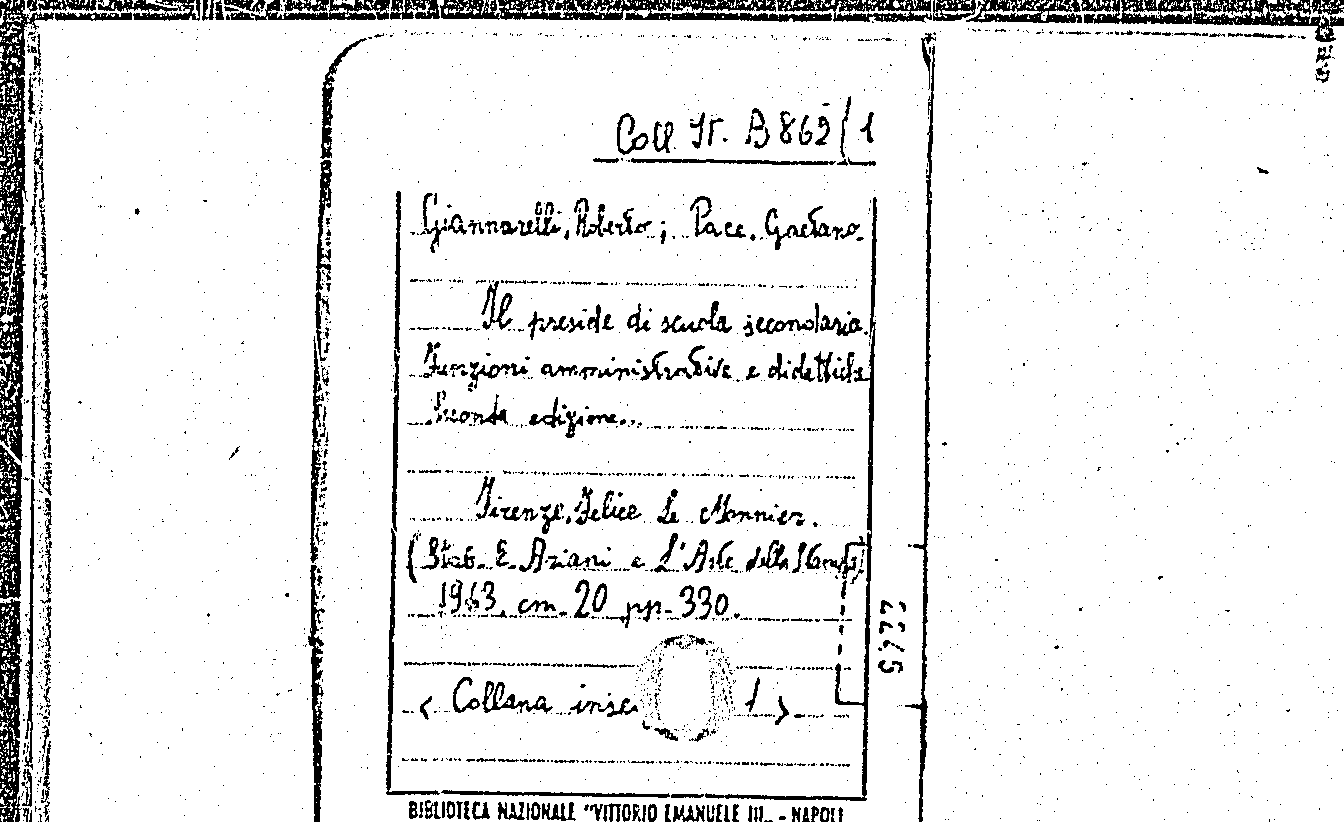 Coll. It. B 862/1
Giannarelli, Roberto; Pace, Gaetano.
Il preside di scuola secondaria.
Funzioni amministrative e didattiche
Seconda edizione...
Firenze, Felice Le Monnier.
(Stab. E. Ariani e L'Arte della Stampa)
1963. cm. 20 pp. 330.
< Collana inse 1 >
BIBLIOTECA NAZIONALE "VITTORIO EMANUELE III„ - NAPOLI